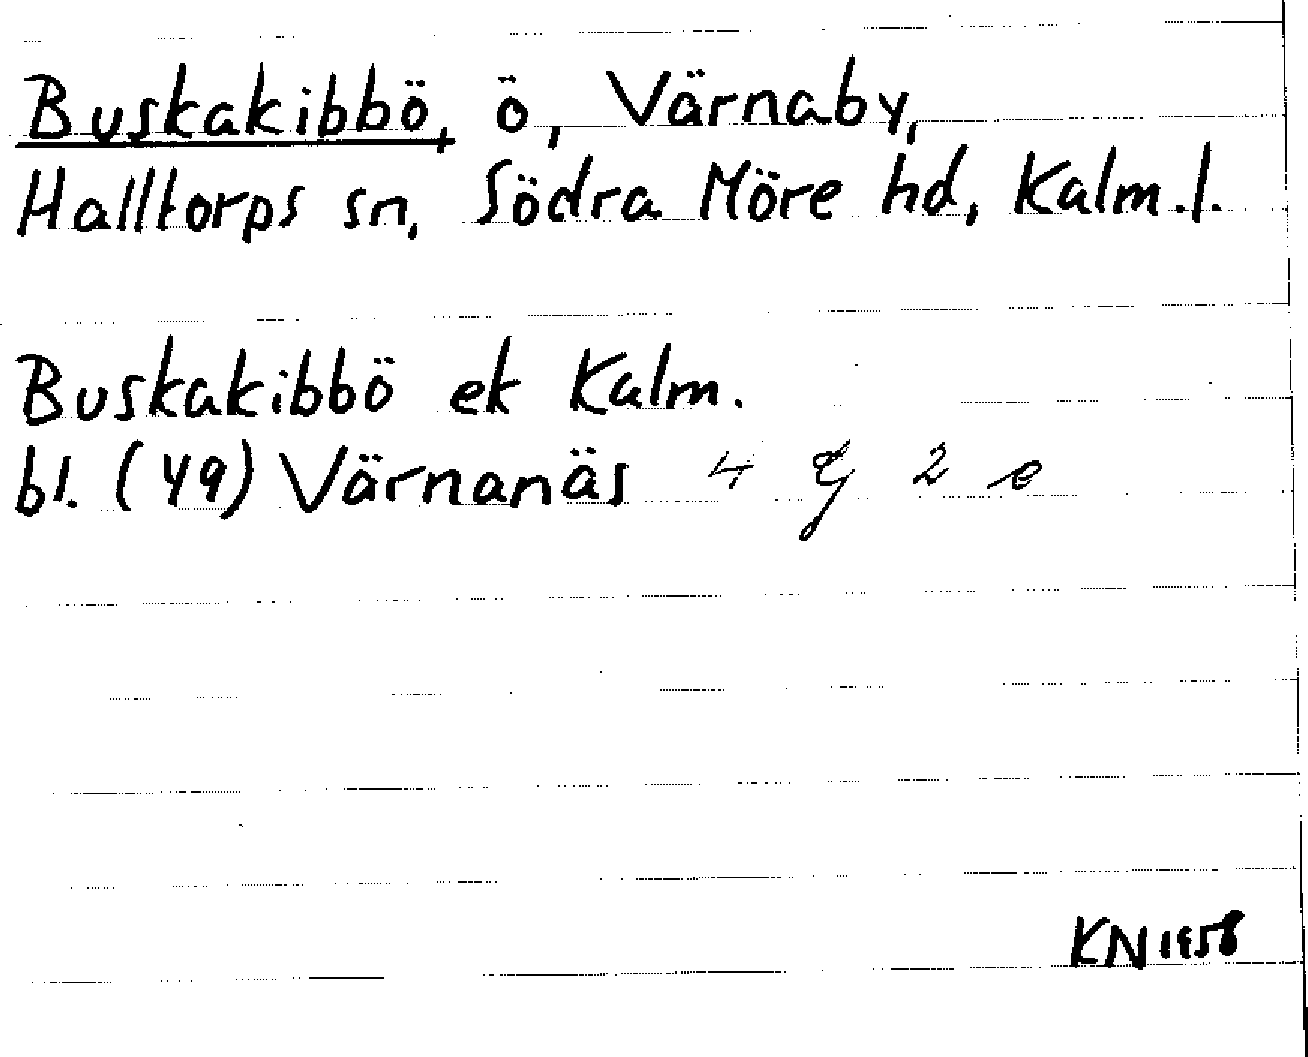 Buskakibbö, ö, Värnaby,
Halltorps sn, Södra Möre hd, Kalm.l.
Buskakibbö ek Kalm.
bl. (49) Värnanäs 4 G 2 e
KN 1958